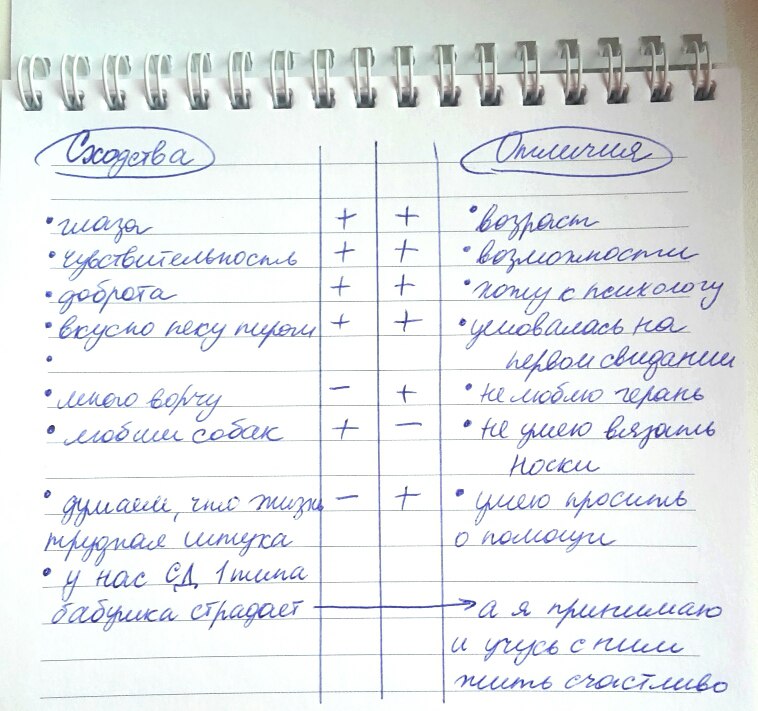 Сходства Отличия
• глаза + + • возраст
• чувствительность + + • возможности
• доброта + + • хожу к психологу
• вкусно пеку пироги + + • целовалась на
• первом свидании
• много ворчу − + • не люблю герань
• любим собак + − • не умею вязать
носки
• думаем, что жизнь − + • умею просить
трудная штука о помощи
• у нас СД 1 типа
бабушка страдает → а я принимаю
и учусь с ним
жить счастливо